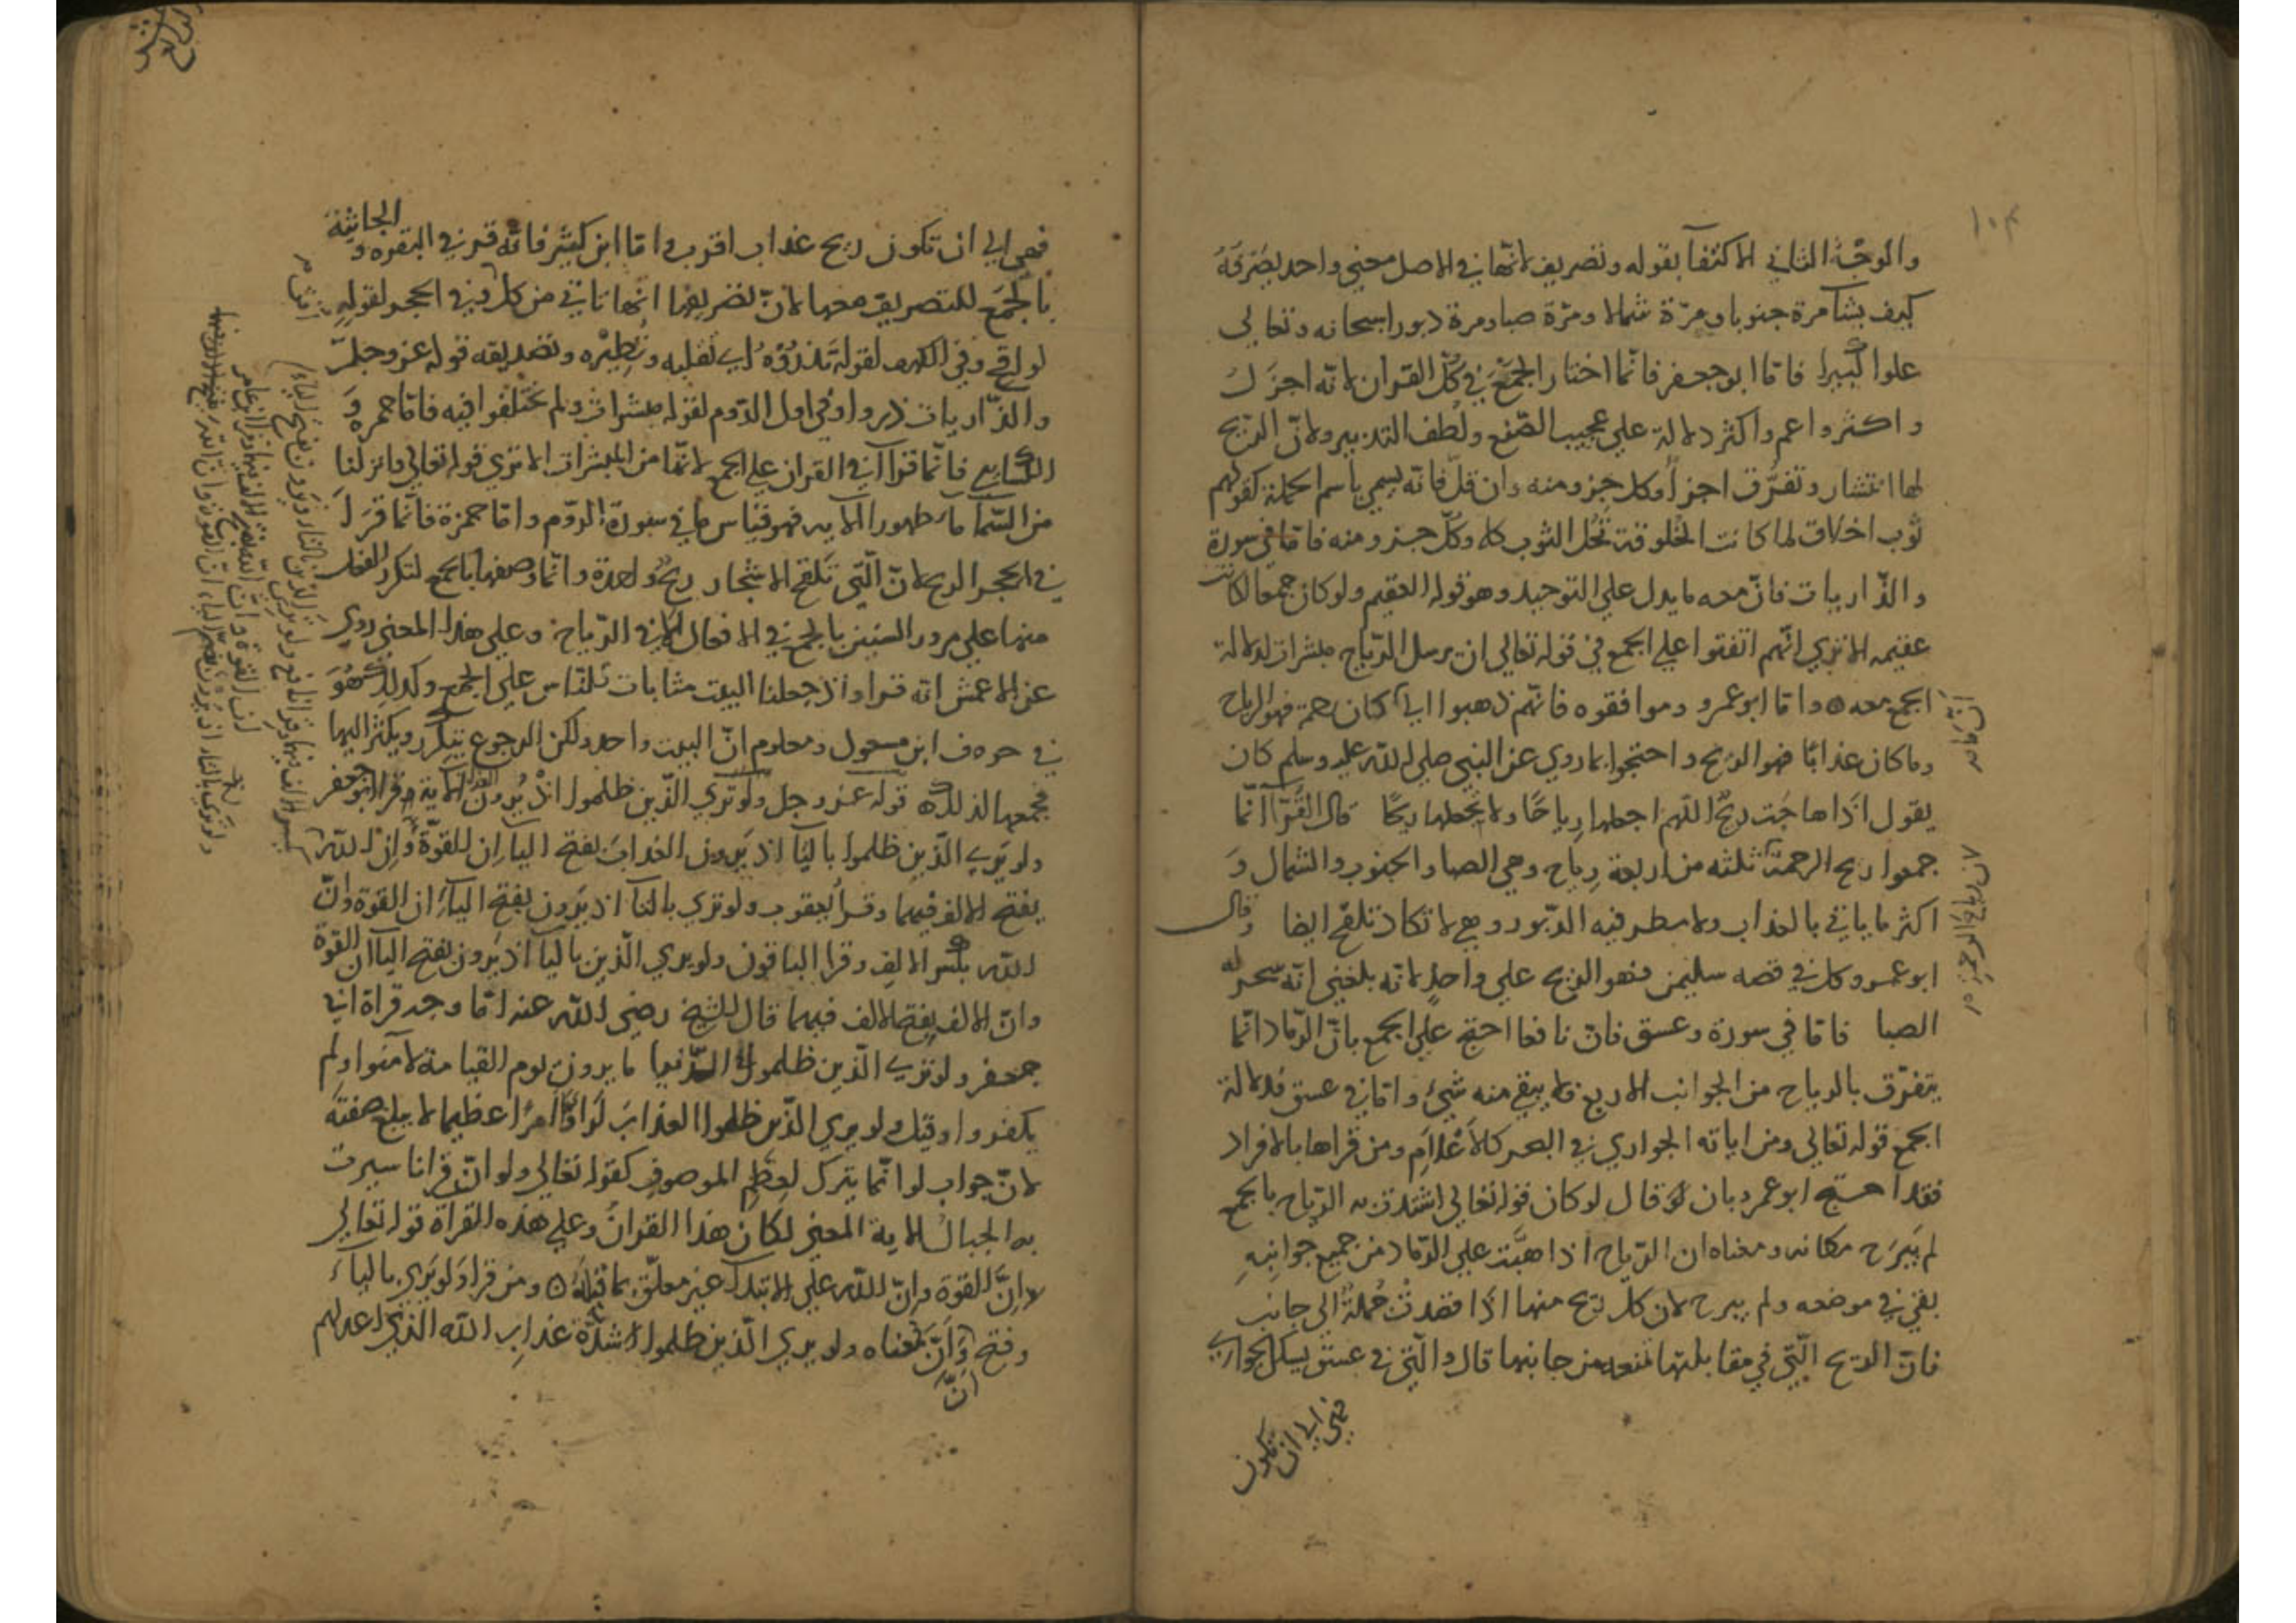 ١٠٣
والوجه الثاني الاكتفآ بقوله وتصريف لانها في الاصل معنى واحد يصرفه
كيف يشآ مرة جنوبا ومرّة شمالا ومرّة صبا ومرة دبورا سبحانه وتعالى
علوا كبيرا فاما ابو جعفر فانّما اختار الجمع في كلّ القران لانّه اجزل
واكثر واعم واكثر دلالة على عجيب الصّنع ولطف التدبير ولانّ الريح
لها انتشار وتفرّق اجزا وكل جزو منه وان قلّ فانه يسمي باسم الجملة كقولهم
ثوب اخلاق لما كانت الخلوقة تحل الثوب كله وكلّ جزو منه فاما في سورة
والذّاريات فانّ معه ما يدل على التوحيد وهو قوله العقيم ولو كان جمعا لكانت
عقيمه الا تري انّهم اتفقوا على الجمع في قوله تعالى ان يرسل الرّياح مبشرات لدلالة
الجمع معه ٥ واما ابو عمرو وموافقوه فانّهم ذهبوا الي كان رحمة فهو الرياح
وما كان عذابًا فهو الريح واحتجوا بما روي عن النبي صلى الله عليه وسلم كان
يقول اذا هاجت ريحٌ اللهم اجعلها رياحًا ولا تجعلها ريحًا قال الفرّآ انّما
جمعوا ريح الرحمة ثلثه من اربعة رياح وهي الصبا والجنوب والشمال وَ
اكثر ما ياتي بالعذاب ولا مطر فيه الدّبور وهي لا تكاد تلقح ايضا وقال
ابو عمرو وكل في قصه سليمن فهو الريح على واحدٍ لانّه بلغني انّه سخر له
الصبا فاما في سورة وعسق فانّ نافعا احتج على الجمع بانّ الرّماد انّما
يتفرّق بالرياح من الجوانب الاربع فلا يبقي منه شيء واما في عسق فلدلالة
الجمع قوله تعالى ومن اياته الجواري في البحر كالاعلام ومن قراها بالافراد
فقد احتج ابو عمرو بان لو قال لو كان قوله تعالى اشتدت به الرّياح بالجمع
لم يبرح مكانه ومعناه ان الرّياح اذا هبّت على الرّماد من جميع جوانبهِ
بقي في موضعه ولم يبرح لان كلّ ريح منها اذا قصدت حمله الى جانب
فانّ الريح الّتي في مقابلتها تمنعه من جانبها قال والّتي في عسق يسكن الجواري
فهي الي ان تكون
فهي الي ان تكون ريح عذاب اقرب واما ابن كثير فانّه قر في البقره و الجاثية
بالجمع للتصريف معها لانّ تصريفها انها تاتي من كل وفي الحجر لقوله
لواقح وفي الكهف لقوله تذروه اي تقلبه وتطيره وتصديقه قوله عز وجلّ
والذّاريات ذروا وفي اول الرّوم لقوله مبشرات ولم يختلفوا فيه فاما حمزه وَ
الكسايي فانّما قرآ في القران على الجمع لانّها من المبشرات الا تري قوله تعالى وانزلنا
من السّمآ مآء طهورا الايه فهو قياس ما في سورة الرّوم واما حمزة فانّما قرَ لَ
في الحجر الريح لانّ الّتي تلقح الاشجار ريحٌ واحدة وانّما وصفها بالجمع لتكرر الفعل
منها على مرور السنين بالجمع في الافعال لا في الرّياح ٥ وعلى هذا المعنى روي
عن الاعمش انه قرا واذ جعلنا البيت مثابات للنّاس على الجمع وكذلك هُوَ
في حرف ابن مسعود ومعلوم انّ البيت واحد ولكن الرجوع يتكرر ويكثر اليها
فجمعها لذلك ٥ قوله عز وجل ولو تري الّذين ظلموا اذ يرون العذاب الاية قرا ابو جعفر
ولو يري الّذين ظلموا باليآ اذ يَرون العذاب بفتح اليا ان القوّة وانّ الله
بفتح الالف فيهما وقرأ يعقوب ولو تري بالتآ اذ يَرون بفتح اليآ ان القوة وانّ
الله بكسر الالف وقرا الباقون ولو يري الّذين باليآ اذ يَرون بفتح اليآ ان القوة
وانّ الالف بفتح الالف فيهما قال الشيخ رضى الله عنه امّا وجه قراة ابي
جعفر ولو تري الّذين ظلموا في الدّنيا ما يرون يوم القيامة لامنوا ولم
يكفروا وقيل ولو يري الّذين ظلموا العذاب لراوا امرًا عظيما لا يبلغ صفته
لانّ جواب لو انّما يترك لعظم الموصوف كقوله تعالى ولو انّ قرانا سيرت
به الجبال الاية المعنى لكان هذا القرانُ وعلى هذه القراة قوله تعالى
لا انّ القوة وانّ الله على الابتدآ غير معلّق بما قبله ٥ ومن قرا ولو يري باليآء
وفتح انّ وانّ فمعناه ولو يري الّذين ظلموا شدّة عذاب الله الذي اعد لهم
انّ